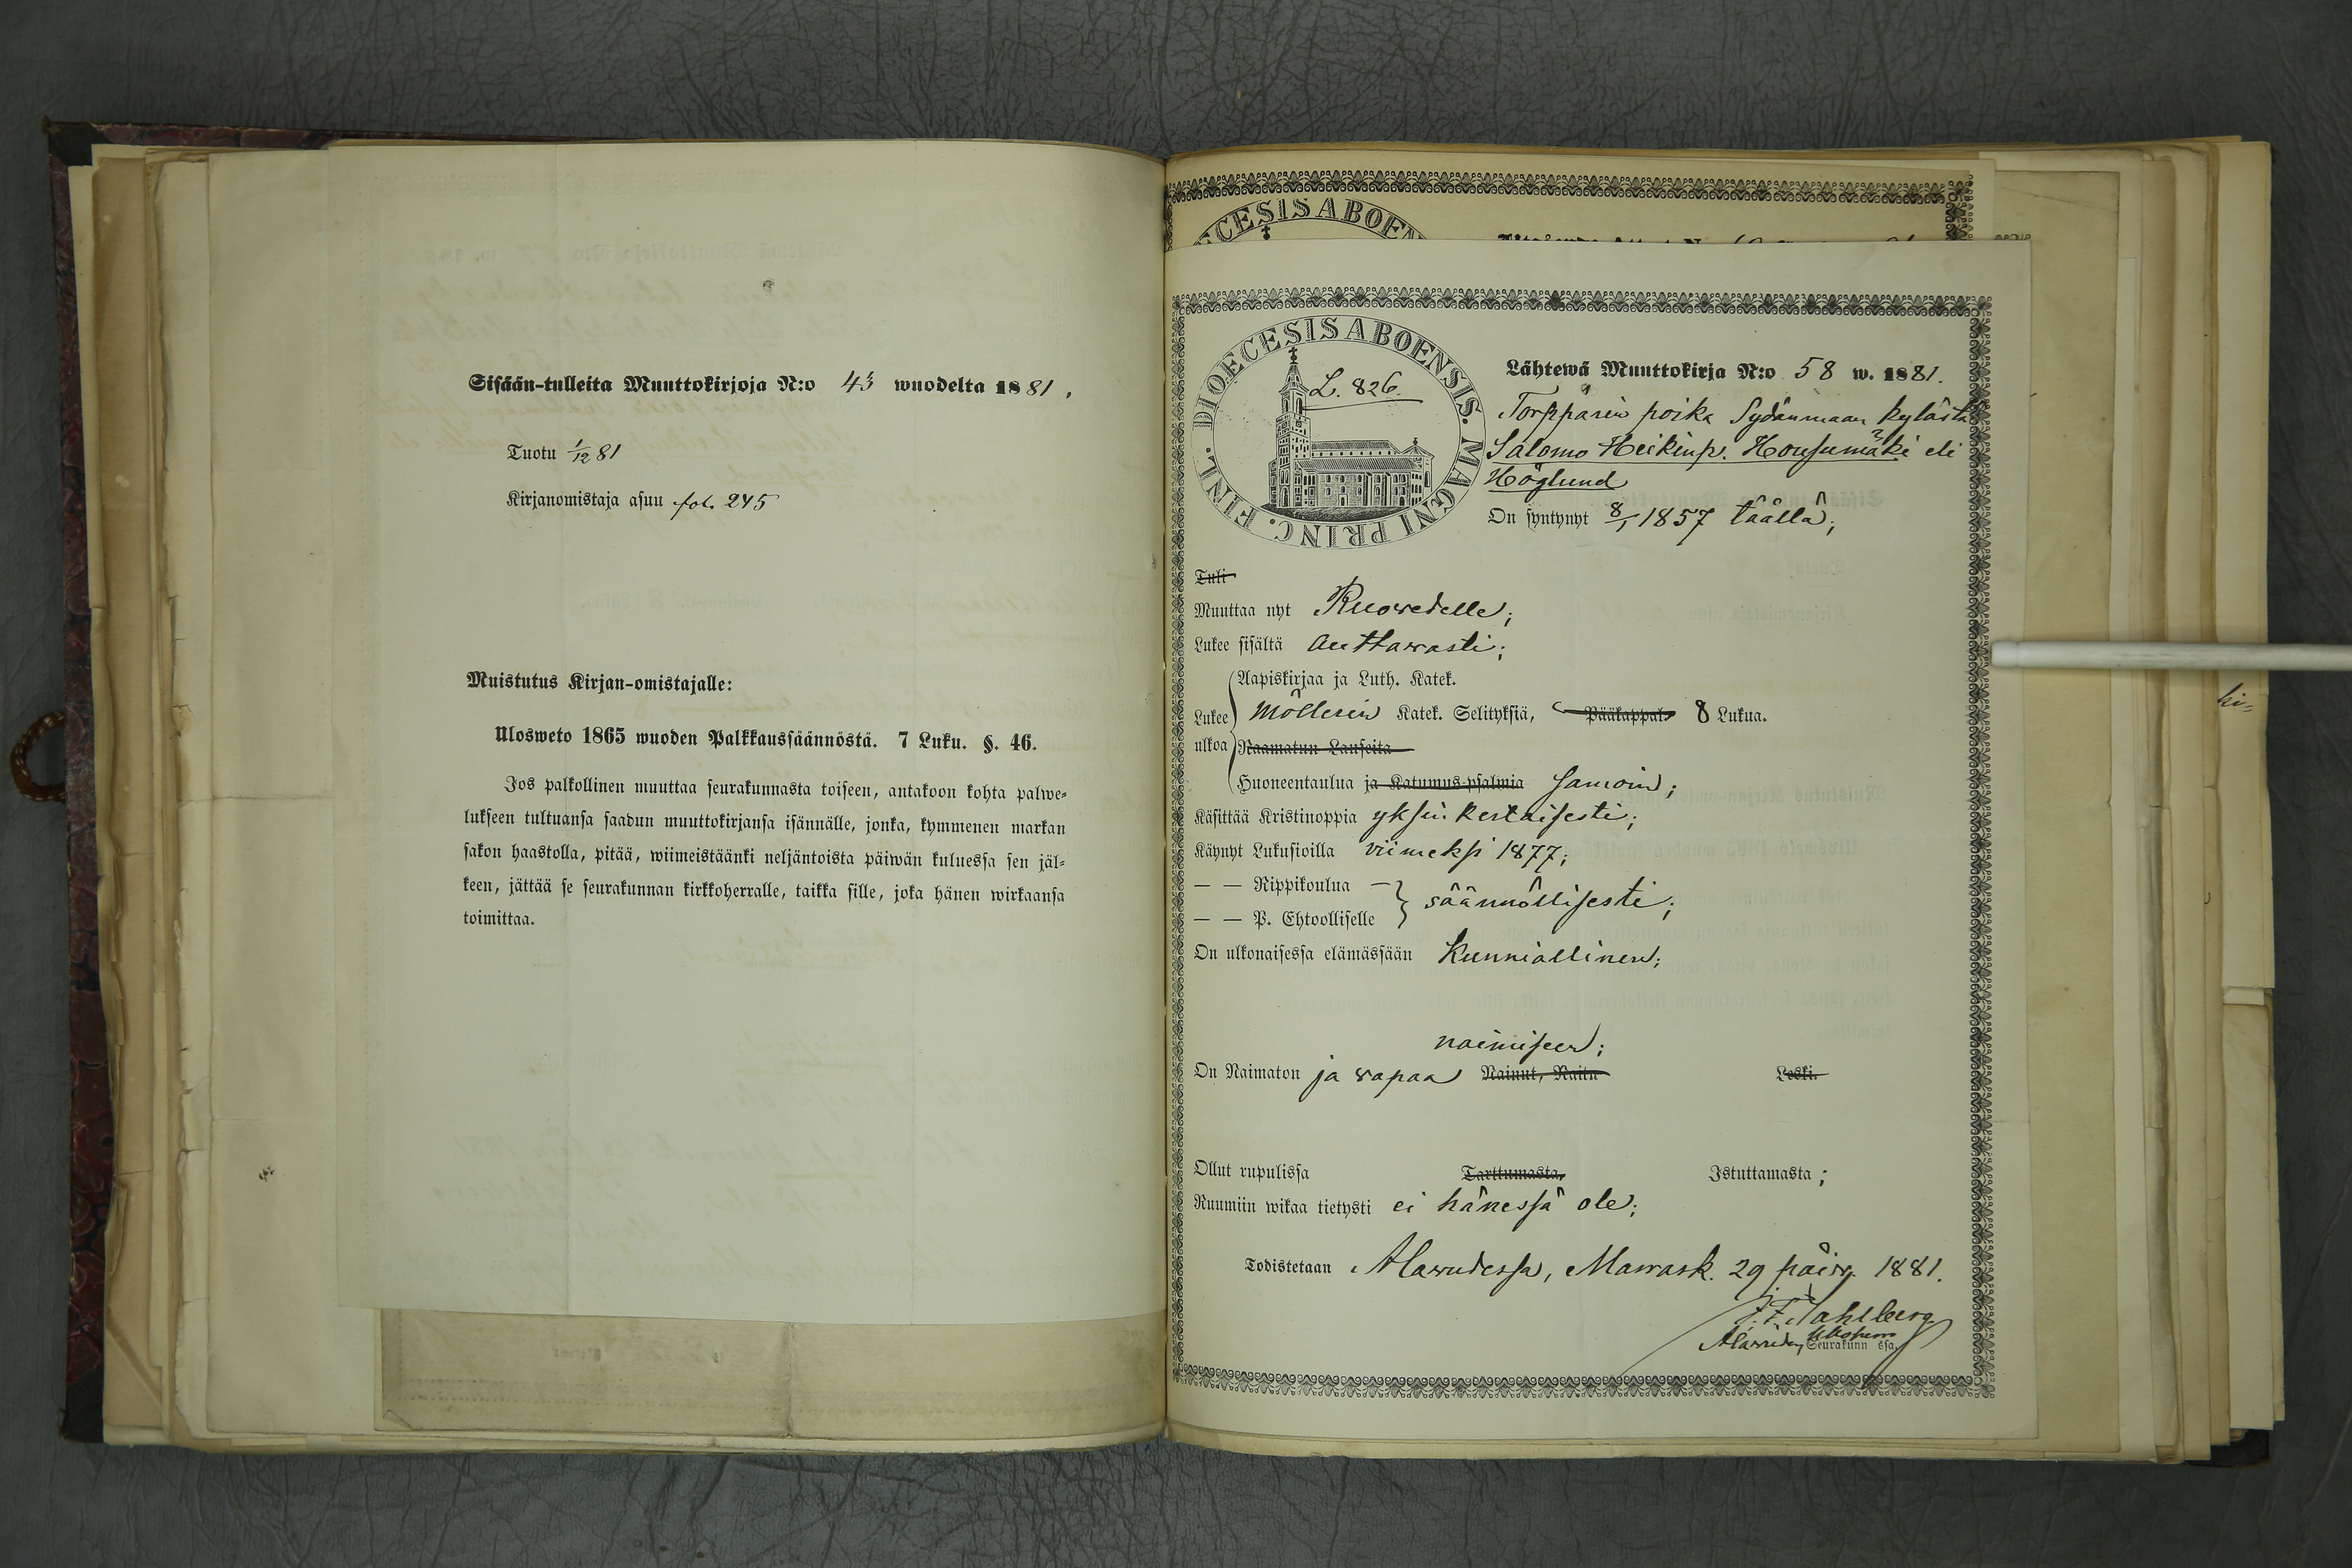 Sisään-tulleita Muuttokirjoja N:o 43 wuodelta 1881.
Tuotu 1/12 81
Kirjanomistaja asuu fol. 245
Muistutus Kirjan-omistajalle:
Ulosweto 1865 wuoden Palkkaussäännöstä. 7 Luku. §. 46.
Jos palkollinen muuttaa seurakunnasta toiseen, antakoon kohta palwe-
lukseen tultuansa saadun muuttokirjansa isännälle, jonka, kymmenen markan
sakon haastolla, pitää, wiimeistäänki neljäntoista päiwän kuluessa sen jäl-
keen, jättää se seurakunnan kirkkoherralle, taikka sille, joka hänen wirkaansa
toimittaa.
CESIS ABOEN
DIOECESIS ABOENSIS. MAGNI PRINC. FINL.
L. 826.
Lähtewä Muuttokirja N:o 58 w. 1881.
Torppärin poika Sydänmaan kylästä
Salomo Heikinp. Housumäki eli
Höglund
On syntynyt 8/1 1857 täällä;
Tuli
Muuttaa nyt Ruowedelle;
Lukee sisältä auttawasti;
Aapiskirjaa ja Luth. Katek.
Lukee Möllerin Katek. Selityksiä, Pääkappal. 8 Lukua.
ulkoa Raamatun Lauseita
Huoneentaulua ja Katumus-psalmia samoin;
Käsittää Kristinoppia yksinkertaisesti;
Käynyt Lukusioilla viimeksi 1877;
— — Rippikoulua —
säännöllisesti;
— — P. Ehtoolliselle
On ulkonaisessa elämässään kunniallinen;
naimiseen;
On Naimaton ja wapaa Nainut, Raitu Leski.
Ollut rupulissa Tarttumasta, Istuttamasta;
Ruumiin wikaa tietysti ei hänessä ole;
Todistetaan Alawudessa, Marrask. 29 päiw. 1881.
J. F. Tahlberg
Alawuden Seurakunn ssa
hi-